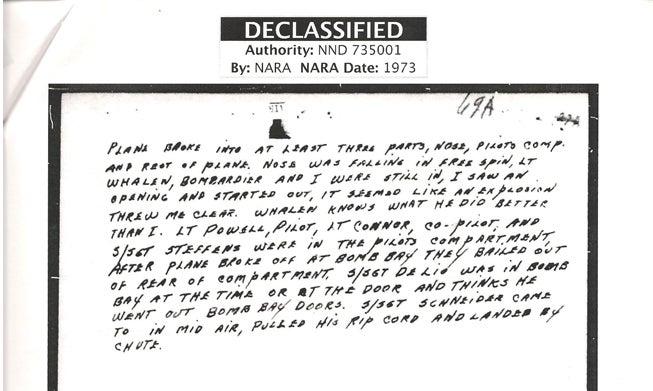 DECLASSIFIED
Authority: NND 735001
By: NARA NARA Date: 1973
69A
PLANE BROKE INTO AT LEAST THREE PARTS, NOSE, PILOTS COMP.
AND REST OF PLANE. NOSE WAS FALLING IN FREE SPIN, LT
WHALEN, BOMBARDIER AND I WERE STILL IN, I SAW AN
OPENING AND STARTED OUT, IT SEEMED LIKE AN EXPLOSION
THREW ME CLEAR. WHALEN KNOWS WHAT HE DID BETTER
THAN I. LT POWELL, PILOT, LT CONNOR, CO-PILOT, AND
S/SGT STEFFENS WERE IN THE PILOTS COMPARTMENT,
AFTER PLANE BROKE OFF AT BOMB BAY THEY BAILED OUT
OF REAR OF COMPARTMENT, S/SGT DE LIO WAS IN BOMB
BAY AT THE TIME OR AT THE DOOR AND THINKS HE
WENT OUT BOMB BAY DOORS. S/SGT SCHNEIDER CAME
TO IN MID AIR, PULLED HIS RIP CORD AND LANDED BY
CHUTE.